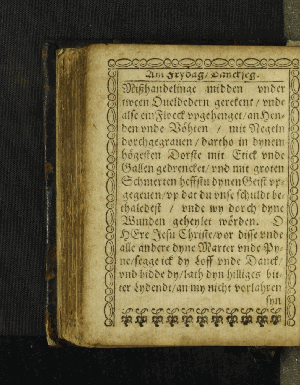 Am Frydag / Danckseg.
Mißhandelinge midden vnder
tween Queldedern gerekent / vnde
alse ein Floeck vpgehenget / an Hen-
den vnde Vöhten / mit Negeln
dorchgegrauen / dartho in dynem
högesten Dorste mit Etick vnde
Gallen gedrencket / vnd mit groten
Schmerten heffstu dynen Geist vp-
gegeuen / vp dat du vnse schuldt be-
thaledest / vnde wy dorch dyne
Wunden geheylet wörden. O
HEre Jesu Christe / vor disse vnde
alle andere dyne Marter vnde Py-
ne / segge ick dy Loff vnde Danck /
vnd bidde dy / lath dyn hilliges bit-
ter Lydendt / an my nicht vorlahren
syn